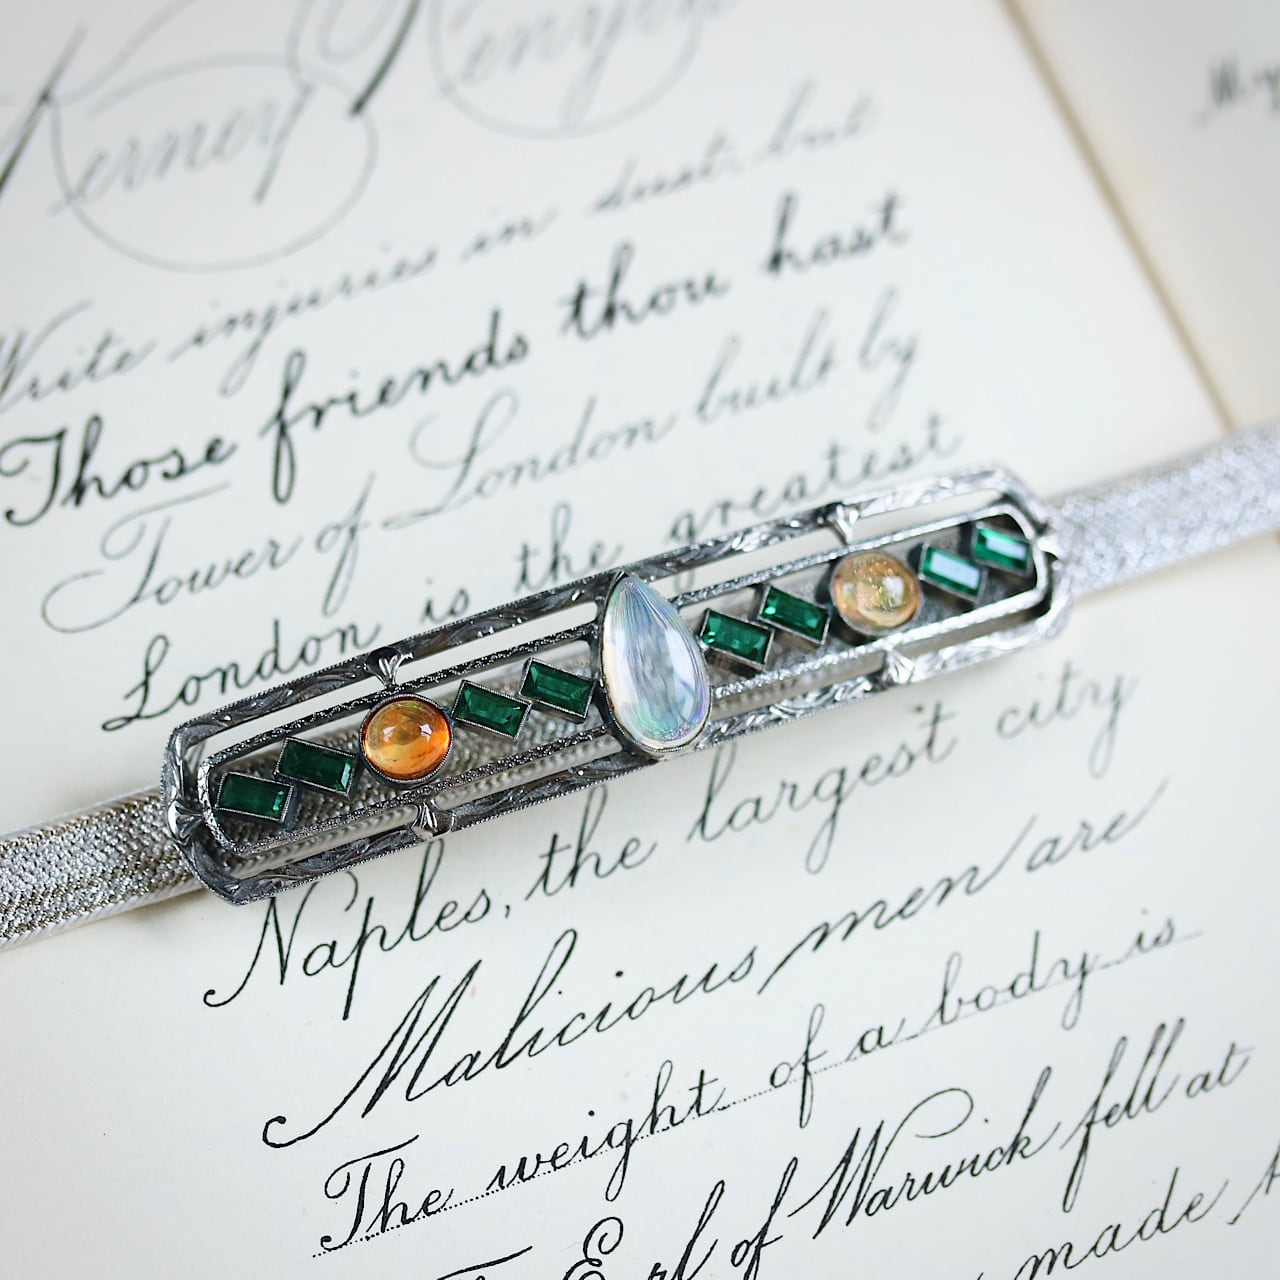 Kerney Kenyon
Write injuries in dust, but
Those friends thou hast
Tower of London built by
London is the greatest
Naples, the largest city
Malicious men are
The weight of a body is
Earl of Warwick fell at
made